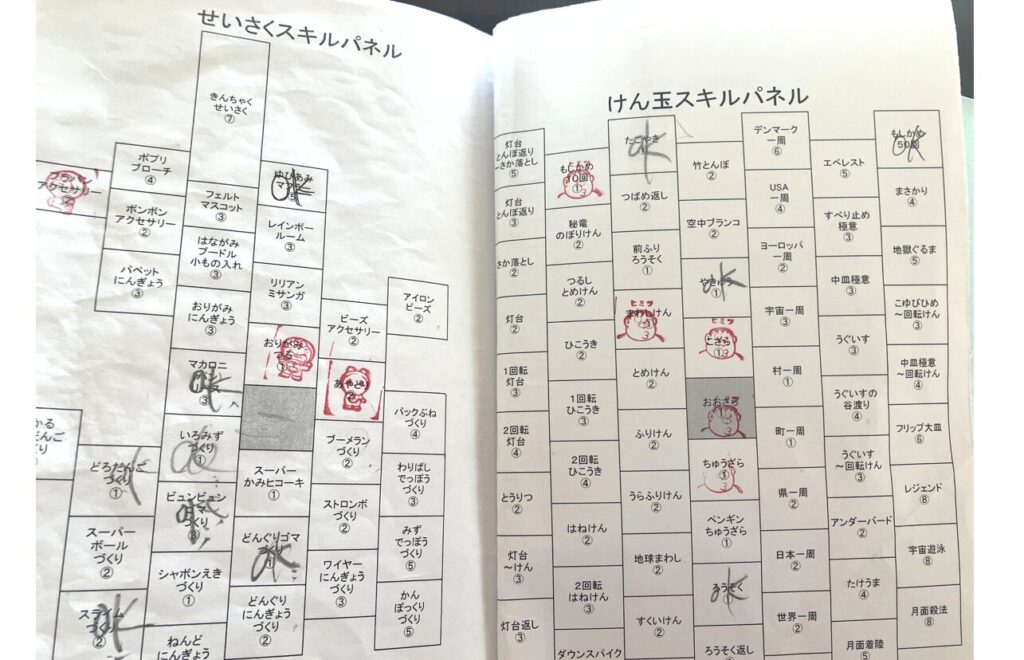 せいさくスキルパネル
きんちゃく
せいさく
⑦
ポプリ
ブローチ
④
ボンボン
アクセサリー
②
パペット
にんぎょう
③
アクセサリー
フェルト
マスコット
③
はながみ
プードル
小もの入れ
③
おりがみ
にんぎょう
③
マカロニ
③
いろみず
づくり
①
づくり
③
シャボンえき
づくり
①
ねんど
にんぎょう
ゆびあみ
レインボー
ルーム
③
リリアン
ミサンガ
③
おりがみ
つる
①
スーパー
かみヒコーキ
①
どんぐりゴマ
①
どんぐり
にんぎょう
づくり
②
ビーズ
アクセサリー
②
あやとり
ブーメラン
づくり
②
ストロンボ
づくり
②
ワイヤー
にんぎょう
づくり
③
アイロン
ビーズ
②
パックぶね
づくり
④
わりばし
でっぽう
づくり
③
みず
でっぽう
づくり
⑤
かん
ぽっくり
づくり
⑤
どろだんご
づくり
①
スーパー
ボール
づくり
②
スライム
づくり
②
ok
ok
ok
ok
ok
けん玉スキルパネル
灯台
とんぼ返り
～さか落とし
⑤
灯台
とんぼ返り
③
さか落とし
②
灯台
②
1回転
灯台
③
2回転
灯台
④
とうりつ
②
灯台
～けん
③
灯台返し
③
もしかめ
10回
①
秘竜
のぼりけん
②
つるし
とめけん
②
ひこうき
②
1回転
ひこうき
③
2回転
ひこうき
④
はねけん
②
2回転
はねけん
③
ダウンスパイク
たこやき
ok
つばめ返し
②
前ふり
ろうそく
①
ヒミツ
まわしけん
③
とめけん
②
ふりけん
②
うらふりけん
②
地球まわし
②
すくいけん
②
竹とんぼ
②
空中ブランコ
②
①
ヒミツ
こざら
①
おおざら
ちゅうざら
①
ペンギン
ちゅうざら
①
ろうそく
①
ok
ろうそく返し
②
デンマーク
一周
⑥
USA
一周
④
ヨーロッパ
一周
②
宇宙一周
③
村一周
①
町一周
①
県一周
②
日本一周
②
世界一周
②
エベレスト
⑤
すべり止め
極意
③
中皿極意
③
うぐいす
③
うぐいすの
谷渡り
④
うぐいす
～回転けん
③
アンダーバード
②
たけうま
④
月面着陸
⑤
もしかめ
50回
ok
まさかり
④
地獄ぐるま
⑤
こゆびひめ
～回転けん
③
中皿極意
～回転けん
④
フリップ大皿
⑥
レジェンド
⑧
宇宙遊泳
⑧
月面殺法
⑧